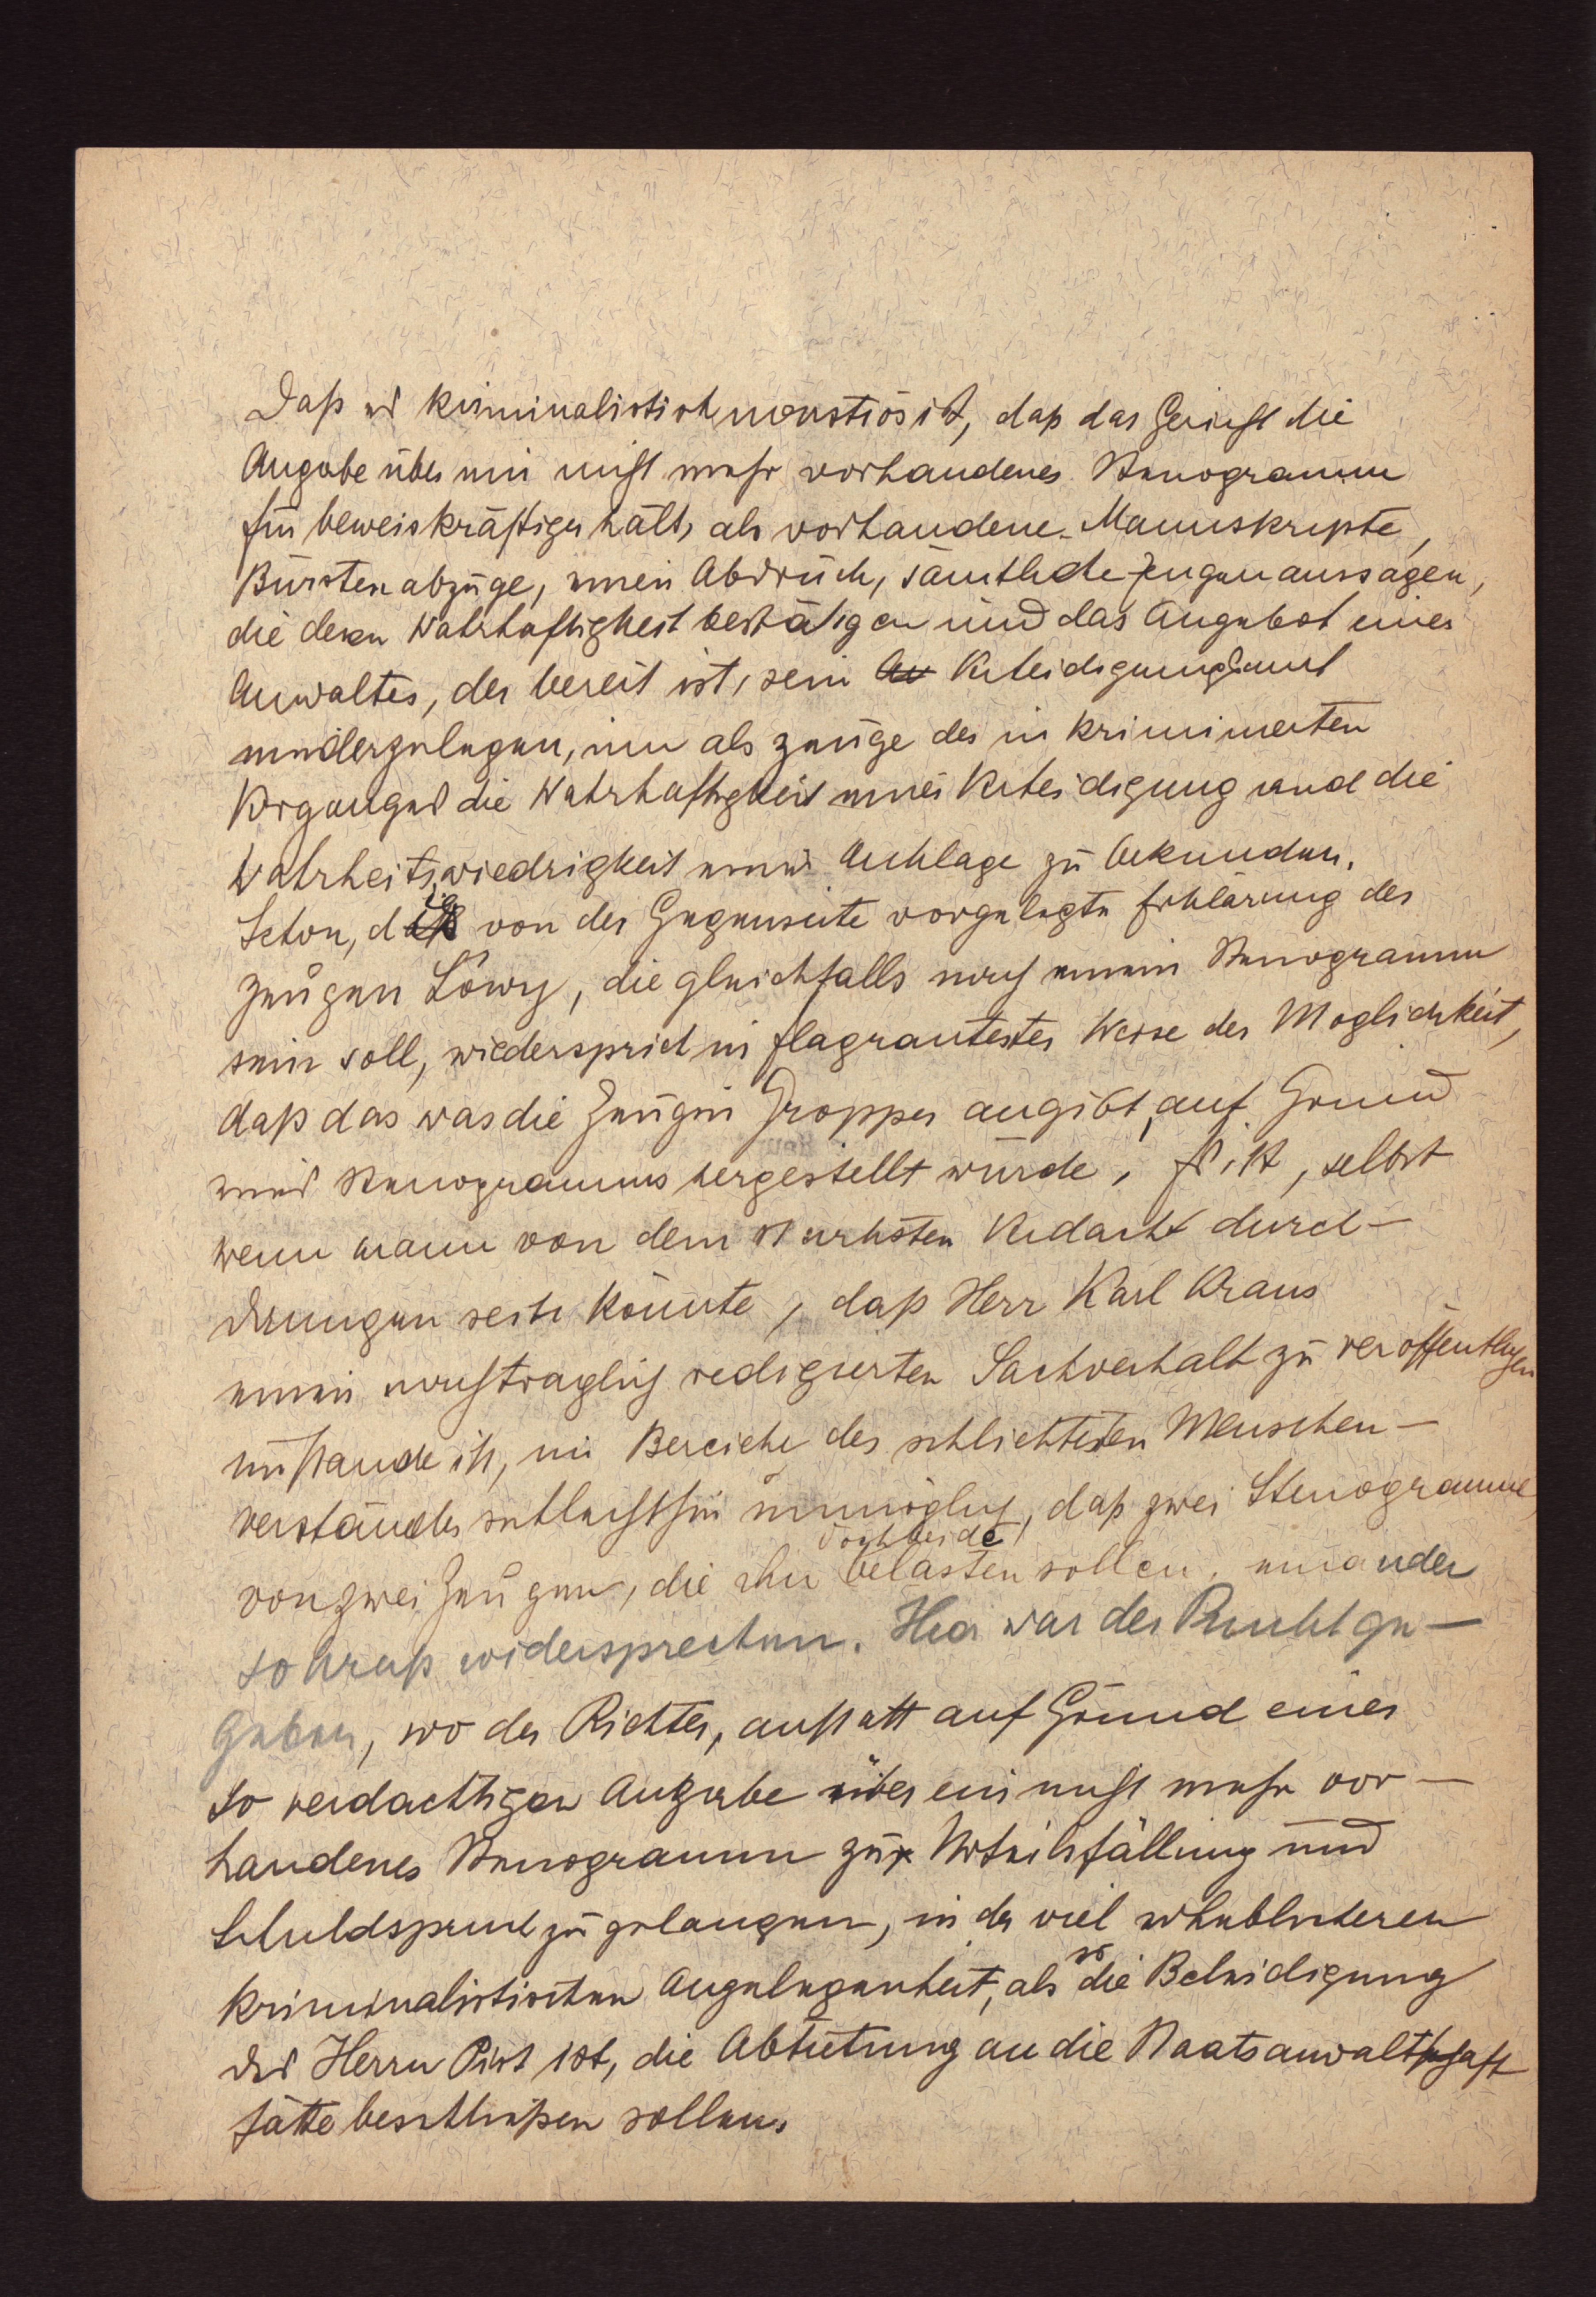 Daß es kriminalistisch monströs ist, daß das Gericht die
Angabe über ein nicht mehr vorhandenes Stenogramm
für beweiskräftiger hält, als vorhandene Manuskripte,
Bürstenabzüge, einen Abdruck, sämtliche Zeugenaussagen,
die deren Wahrhaftigkeit bestätigen und das Angebot eines
Anwaltes, der bereit ist, sein Verteidigungsamt
niederzulegen, um als Zeuge des inkriminierten
Vorganges die Wahrhaftigkeit einer Verteidigung und die
Wahrheitswiedrigkeit einer Anklage zu bekunden.
Schon, die von der Gegenseite vorgelegte Erklärung des
Zeugen Löwy, die gleichfalls nach einem Stenogramm
sein soll, wiederspricht in flagrantester Weise der Möglichkeit,
daß das was die Zeugin Gropper angibt, auf Grund
eines Stenogramms hergestellt wurde. Es ist, selbst
wenn mann von dem stärksten Verdacht durch-
drungen sein könnte, daß Herr Karl Kraus
einen nachträglich redigierten Sachverhalt zu veröffentlichen
imstande ist, im Bereiche des schlichtesten Menschen-
verstandes schlechthin unmöglich, daß zwei Stenogramme
von zwei Zeugen, die ihn doch beide belasten sollen, einander
so kraß widersprechen. Hier war der Punkt ge-
geben, wo der Richter, anstatt auf Grund einer
so verdächtigen Angabe über ein nicht mehr vor-
handenes Stenogramm zur Urteilsfällung und
Schuldspruch zu gelangen, in der viel erheblicheren
kriminalistischen Angelegenheit, als es die Beleidigung
des Herrn Pisk ist, die Abtretung an die Staatsanwaltschaft
hätte beschließen sollen.